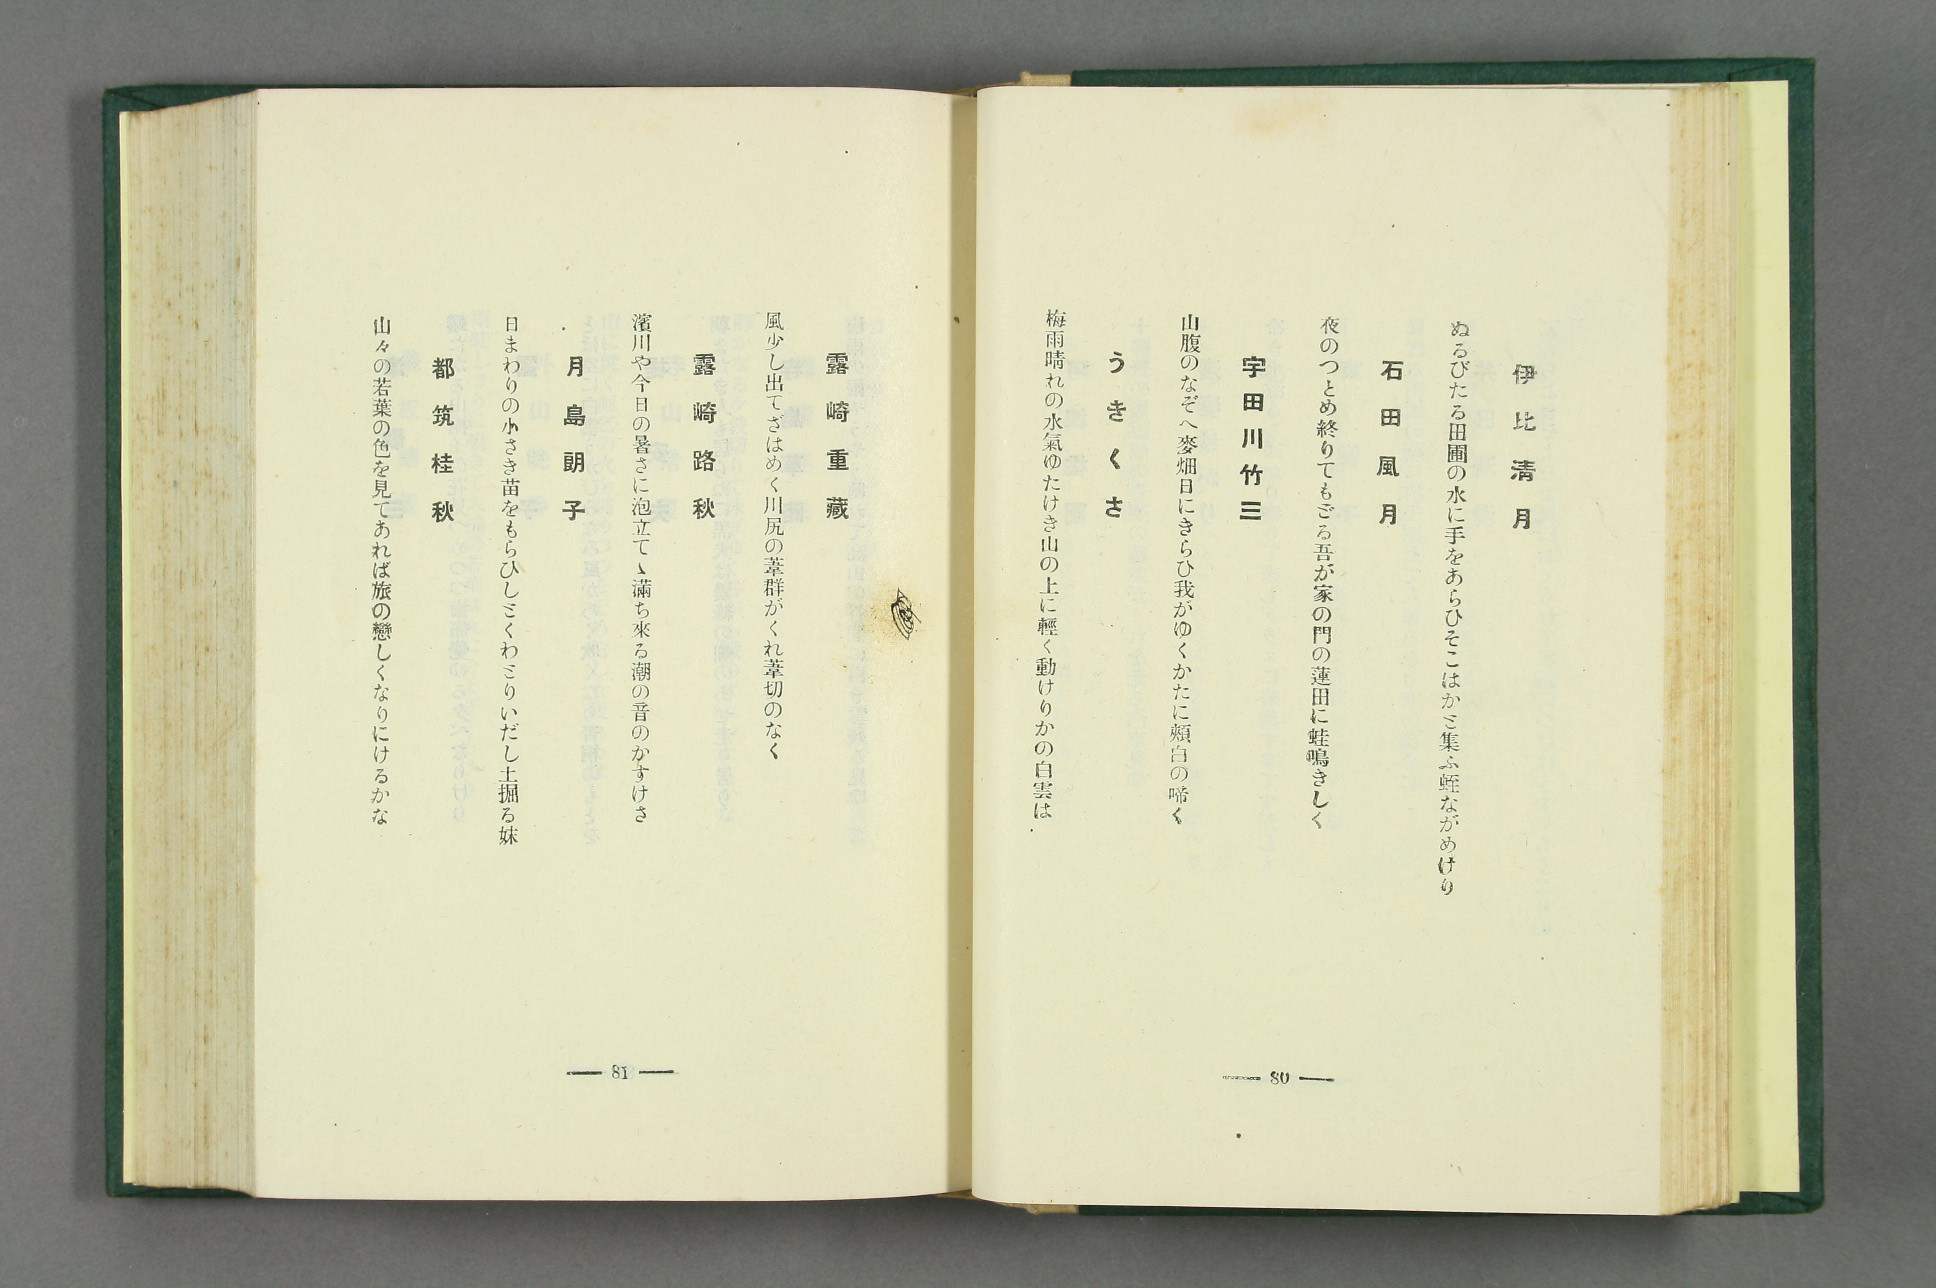 伊比淸月
ぬるびたる田圃の水に手をあらひそこはかと集ふ蛭ながめけり
石田風月
夜のつとめ終りてもどる吾が家の門の蓮田に蛙鳴きしく
宇田川竹三
山腹のなぞへ麥畑日にきらひ我がゆくかたに頰白の啼く
うきくさ
梅雨晴れの水氣ゆたけき山の上に輕く動けりかの白雲は
80
露崎重藏
風少し出てざはめく川尻の葦群がくれ葦切のなく
露崎路秋
濱川や今日の暑さに泡立てゝ滿ち來る潮の音のかすけさ
月島朗子
日まわりの小さき苗をもらひしとくわとりいだし土掘る妹
都筑桂秋
山々の若葉の色を見てあれば旅の戀しくなりにけるかな
81